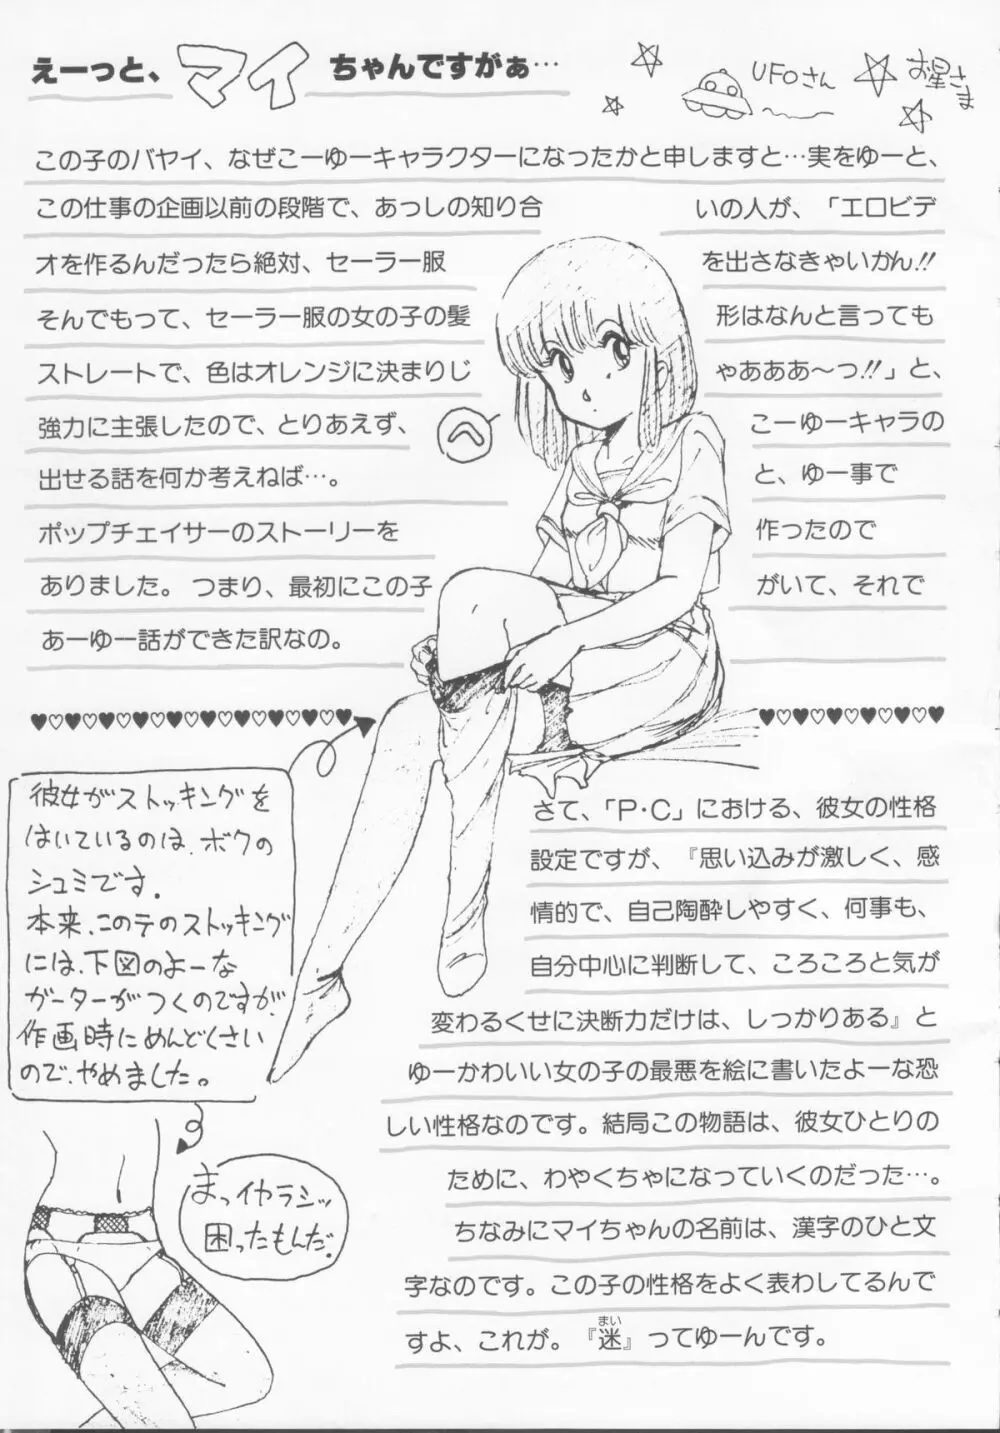 えーっと、マイちゃんですがぁ…
UFOさん
お星さま
この子のバヤイ、なぜこーゆーキャラクターになったかと申しますと…実をゆーと、
この仕事の企画以前の段階で、あっしの知り合いの人が、「エロビデ
オを作るんだったら絶対、セーラー服を出さなきゃいかん!!
そんでもって、セーラー服の女の子の髪形はなんと言っても
ストレートで、色はオレンジに決まりじゃあああ〜っ!!」と、
強力に主張したので、とりあえず、こーゆーキャラの
出せる話を何か考えねば…。と、ゆー事で
ポップチェイサーのストーリーを作ったので
ありました。つまり、最初にこの子がいて、それで
あーゆー話ができた訳なの。
へ
♥♡♥♡♥♡♥♡♥♡♥♡♥♡♥♡♥♡♥ ♥♡♥♡♥♡♥♡♥♡♥
彼女がストッキングを
はいているのは、ボクの
シュミです.
本来、このテのストッキング
には、下図のよーな
ガーターがつくのですが、
作画時にめんどくさい
ので、やめました。
まっイヤラシッ
困ったもんだ.
さて、「P・C」における、彼女の性格
設定ですが、『思い込みが激しく、感
情的で、自己陶酔しやすく、何事も、
自分中心に判断して、ころころと気が
変わるくせに決断力だけは、しっかりある』と
ゆーかわいい女の子の最悪を絵に書いたよーな恐
しい性格なのです。結局この物語は、彼女ひとりの
ために、わやくちゃになっていくのだった…。
ちなみにマイちゃんの名前は、漢字のひと文
字なのです。この子の性格をよく表わしてるんで
すよ、これが。『迷(まい)』ってゆーんです。